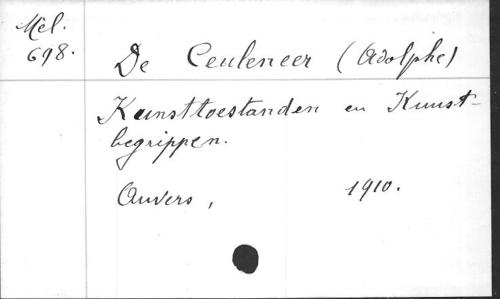 Mél.
698.
De Ceuleneer (Adolphe)
Kunsttoestanden en Kunst-
begrippen.
Anvers, 1910.